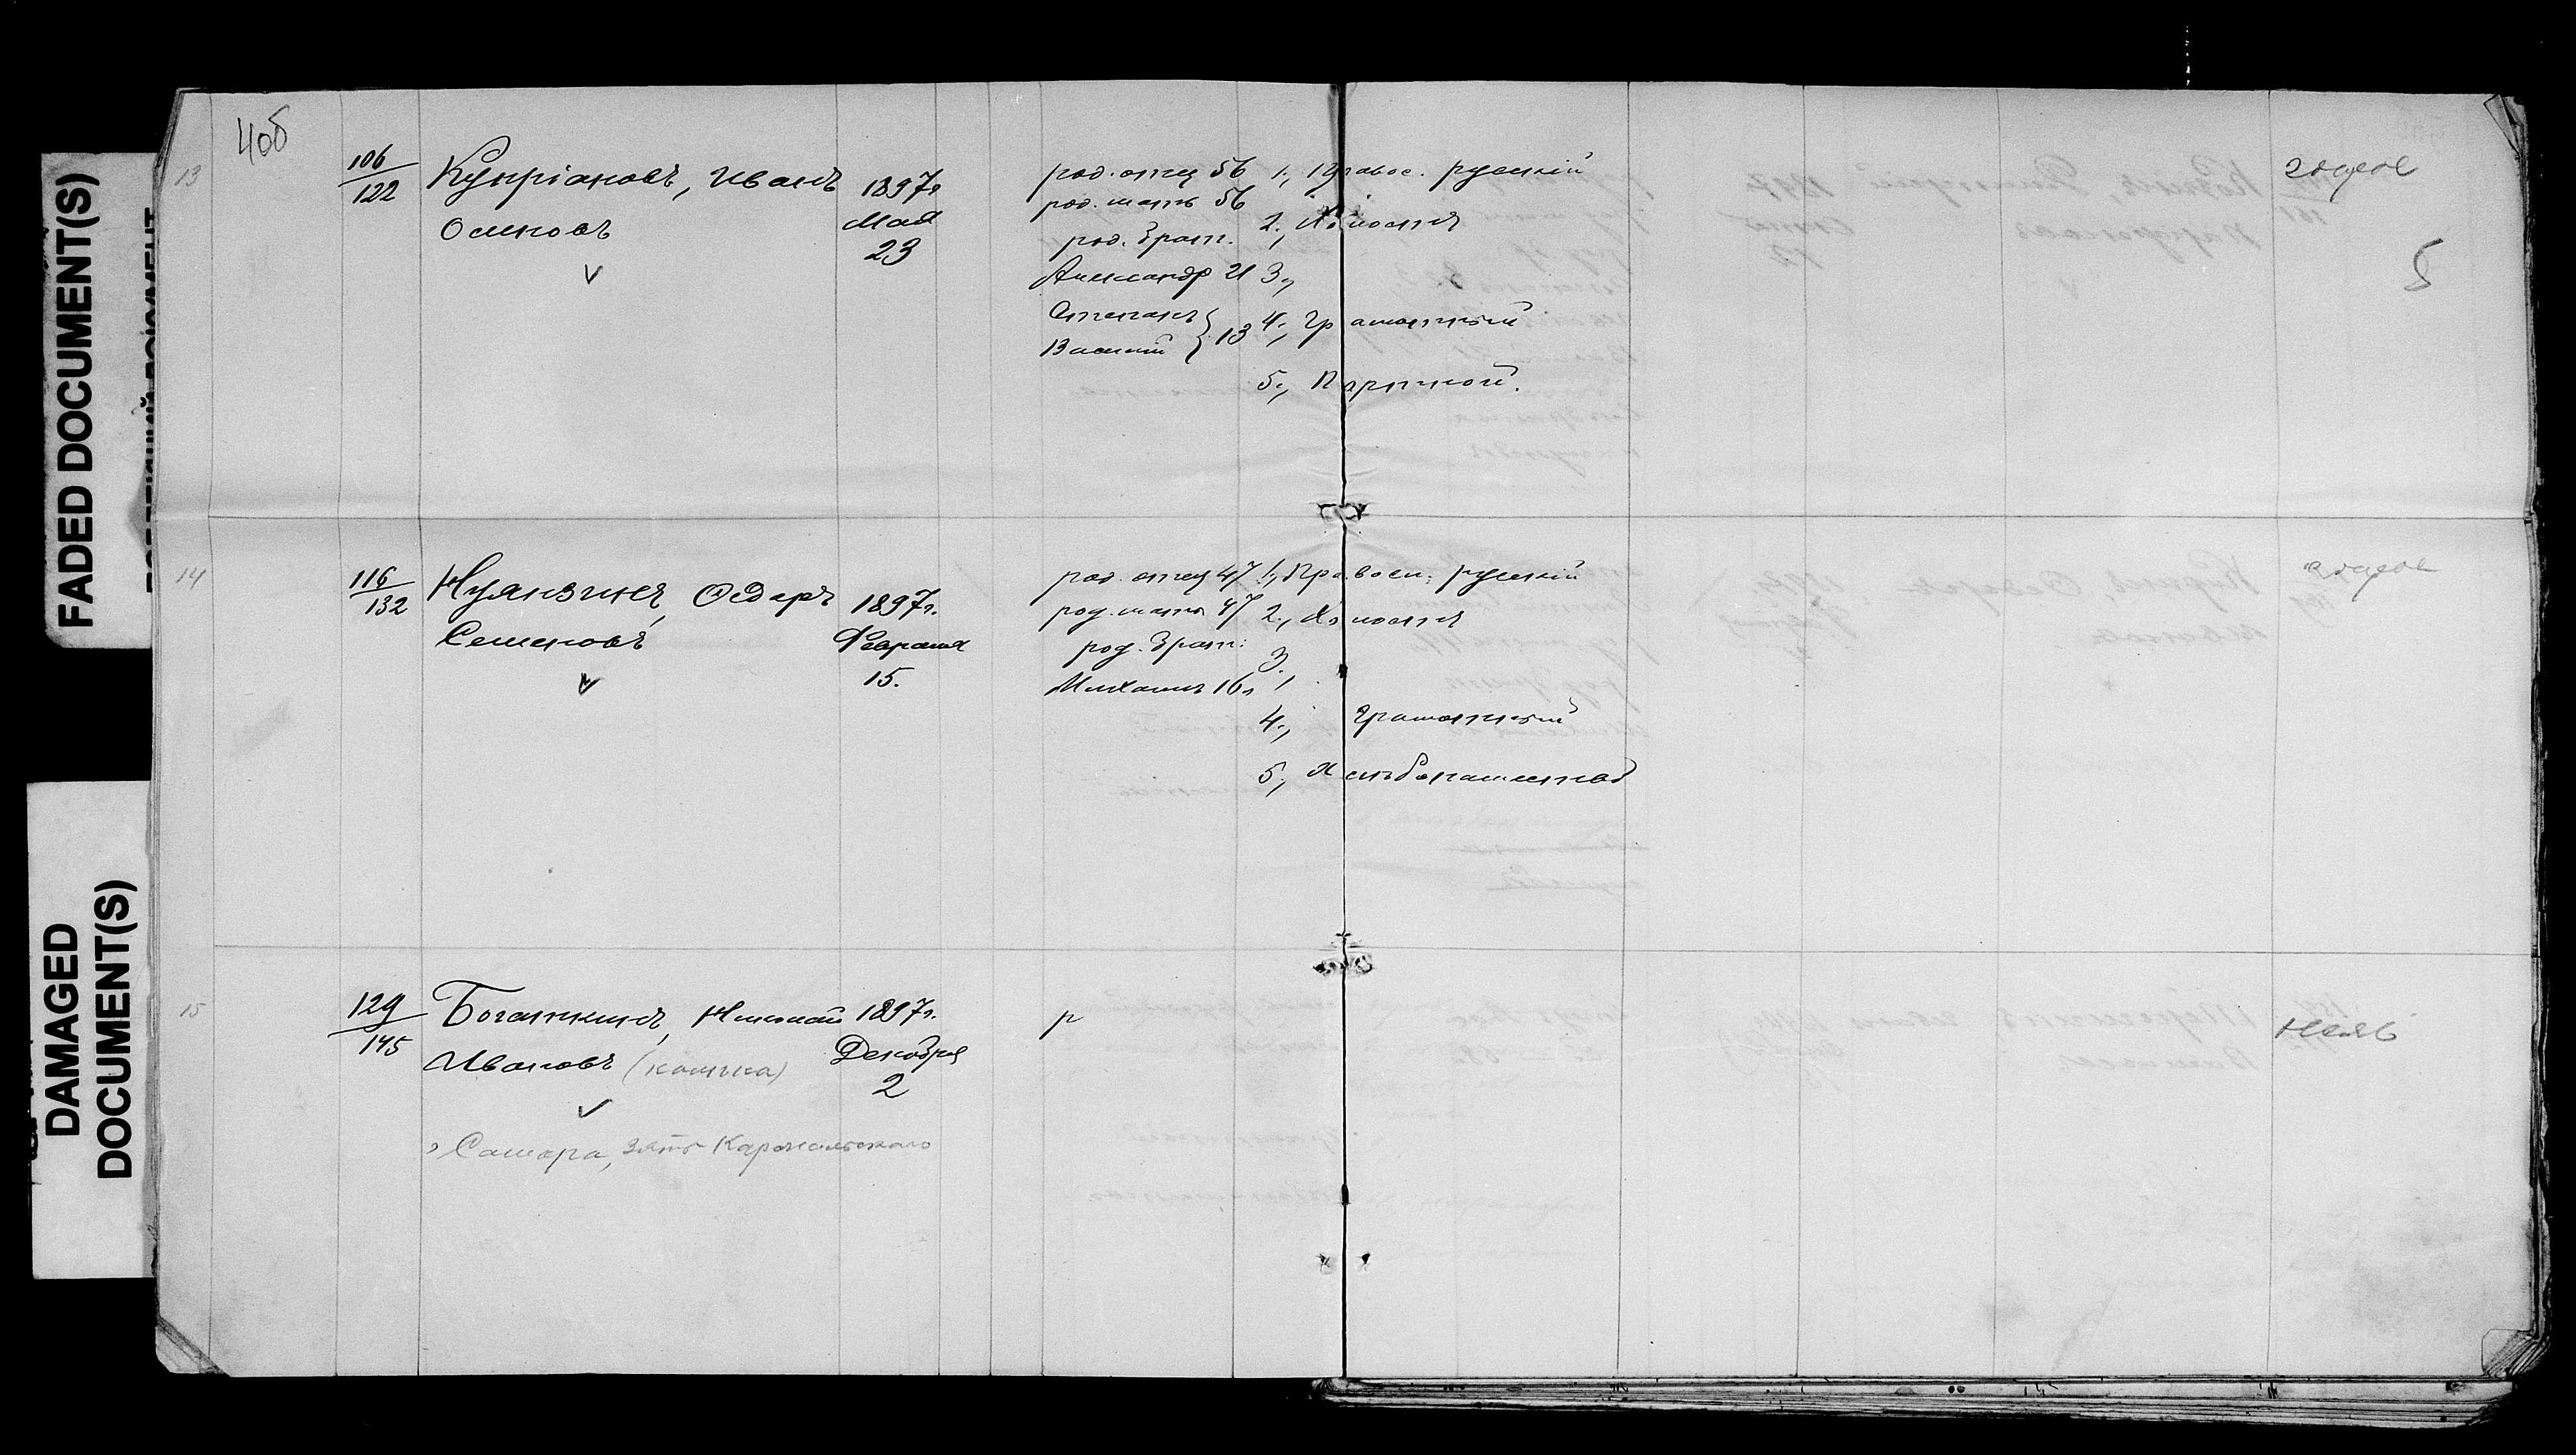 FADED DOCUMENT(S)
DAMAGED
DOCUMENT(S)
4об
13
106
122
Купріановъ, Иванъ
Осиповъ
1897г
Мая
23
род. отец 56
род. мать 56
род. брат.
Александр 21
Степанъ
Василий } 13
1., Правос. русский
2., Холостъ
3.,
4., Грамотный
5., Портной.
годов
5
14
116
132
Нуянзинъ, Федаръ
Семеновъ
1897г.
Февраля
15.
род. отец 47
род. мать 47
род. брат:
Михаилъ 16л
1., Правосл: русский
2., Холостъ
3.,
4., Грамотный
5., Хлебопашество
15
129
145
Богаткинъ, Николай
Ивановъ
1897г.
Декабря
2
р
Самара, зять
Неяв